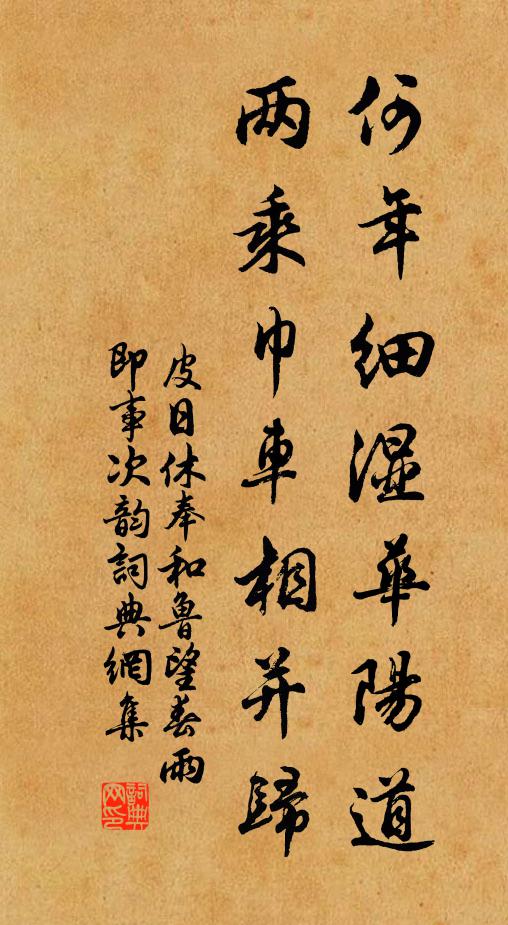 何年细濕華陽道
两乘巾車相并歸
皮日休奉和魯望春雨
即事次韵詞典網集
詞典网印